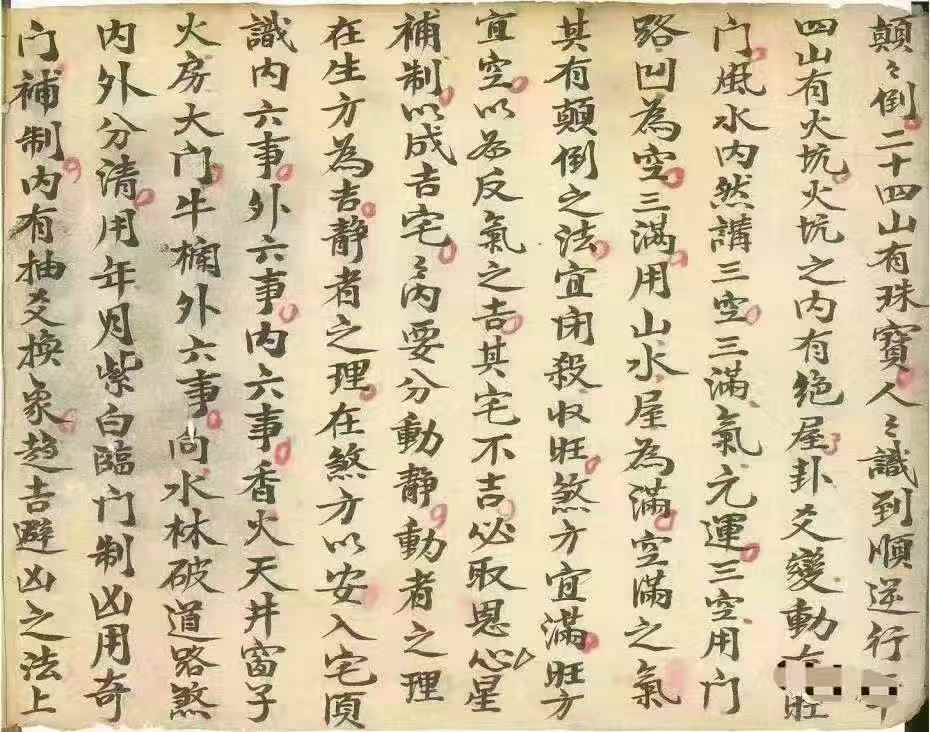 顛〻倒二十四山有珠寶人〻識到順逆行二十
四山有火坑火坑之内有绝屋卦爻變動有旺
门風水内然講三空三滿氣元運三空用门门
路凹為空三滿用山水屋為滿空滿之氣
其有顛倒之法宜闭殺収旺煞方宜滿旺方
宜空以為反氣之吉其宅不吉必取恩心星
補制以成吉宅〻内要分動静動者之理
在生方為吉静者之理在煞方以安入宅須
識内六事外六事内六事香火天井窗子
火房大门牛欄外六事向水林破道路煞
内外分清用年月紫白臨门制凶用奇
门補制内有抽爻換象趋吉避凶之法上